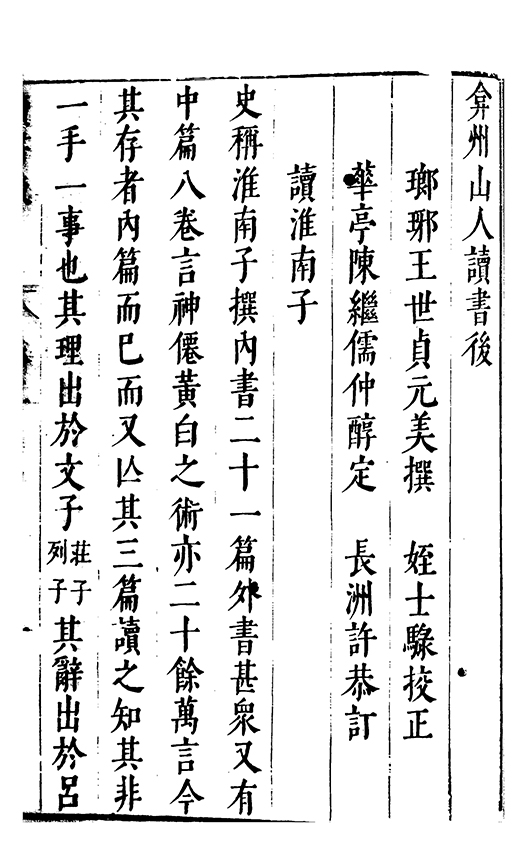 弇州山人讀書後
瑯琊王世貞元美撰　姪士騄挍正
華亭陳繼儒仲醇定　長洲許恭訂
讀淮南子
史稱淮南子撰內書二十一篇外書甚衆又有
中篇八卷言神僊黃白之術亦二十餘萬言今
其存者內篇而已而又亾其三篇讀之知其非
一手一事也其理出於文子莊子列子其辭出於呂